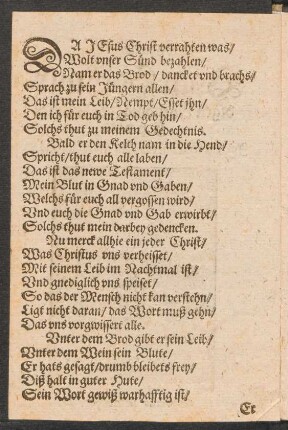 DA JEsus Christ verrahten was/
Wolt vnser Sünd bezahlen/
Nam er das Brod / dancket vnd brachs/
Sprach zu sein Jüngern allen/
Das ist mein Leib/Nempt/Esset jhn/
Den ich für euch in Tod geb hin/
Solchs thut zu meinem Gedechtnis.
Bald er den Kelch nam in die Hend/
Spricht/thut euch alle laben/
Das ist das newe Testament/
Mein Blut in Gnad vnd Gaben/
Welchs für euch all vergossen wird/
Vnd euch die Gnad vnd Gab erwirbt/
Solchs thut mein darbey gedencken.
Nu merck allhie ein jeder Christ/
Was Christus vns verheisset/
Mit seinem Leib im Nachtmal ist/
Vnd gnediglich vns speiset/
So das der Mensch nicht kan verstehn/
Ligt nicht daran/ das Wort muß gehn/
Das vns vorgwissert alle.
Vnter dem Brod gibt er sein Leib/
Vnter dem Wein sein Blute/
Er hats gesagt/drumb bleibets frey/
Diß halt in guter Hute/
Sein Wort gewiß warhafftig ist/
Er